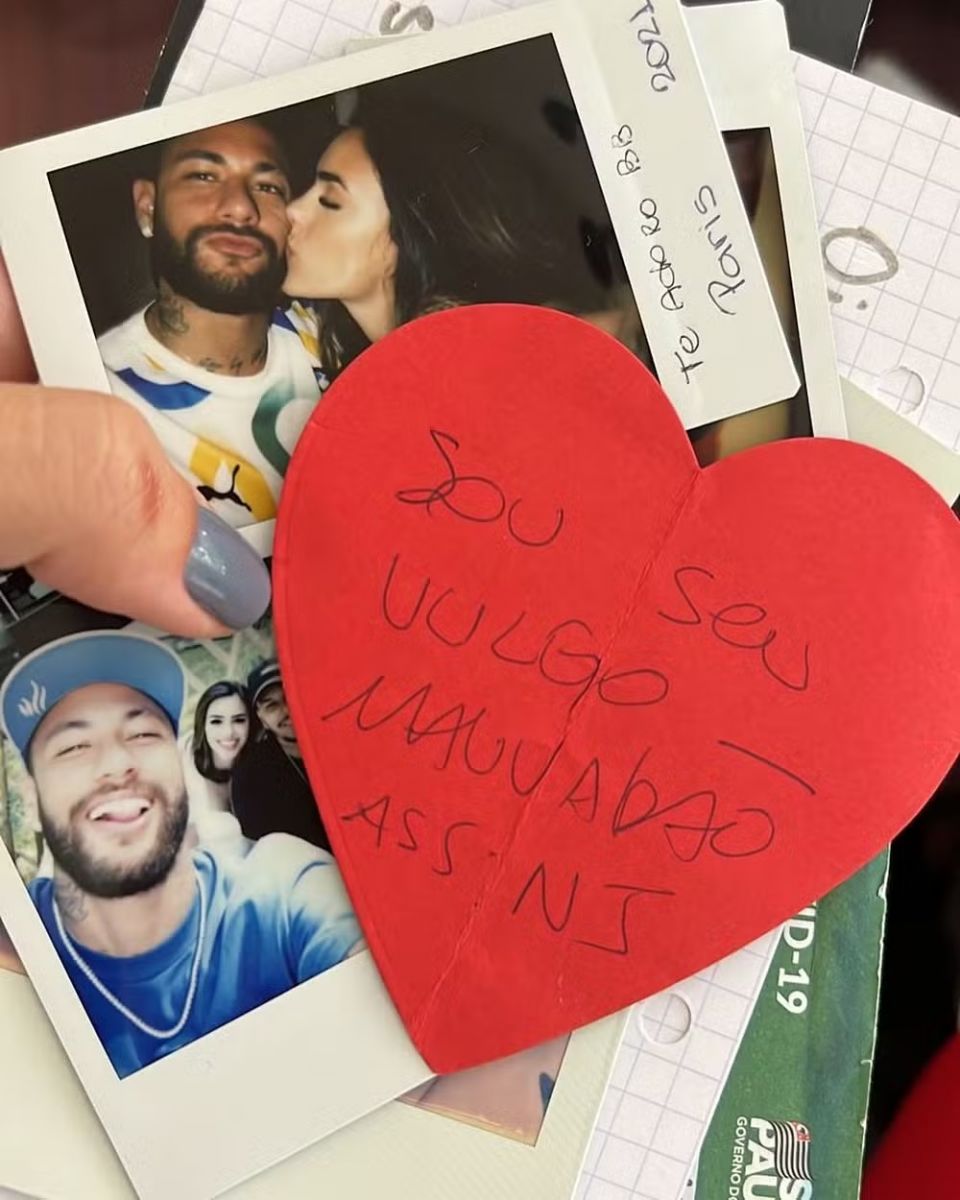 2021
TE ADORO BB
Paris
SOU SEU
VULGO
MALVADÃO
ASS NJ
ID-19
SÃO
PAU
GOVERNO DO